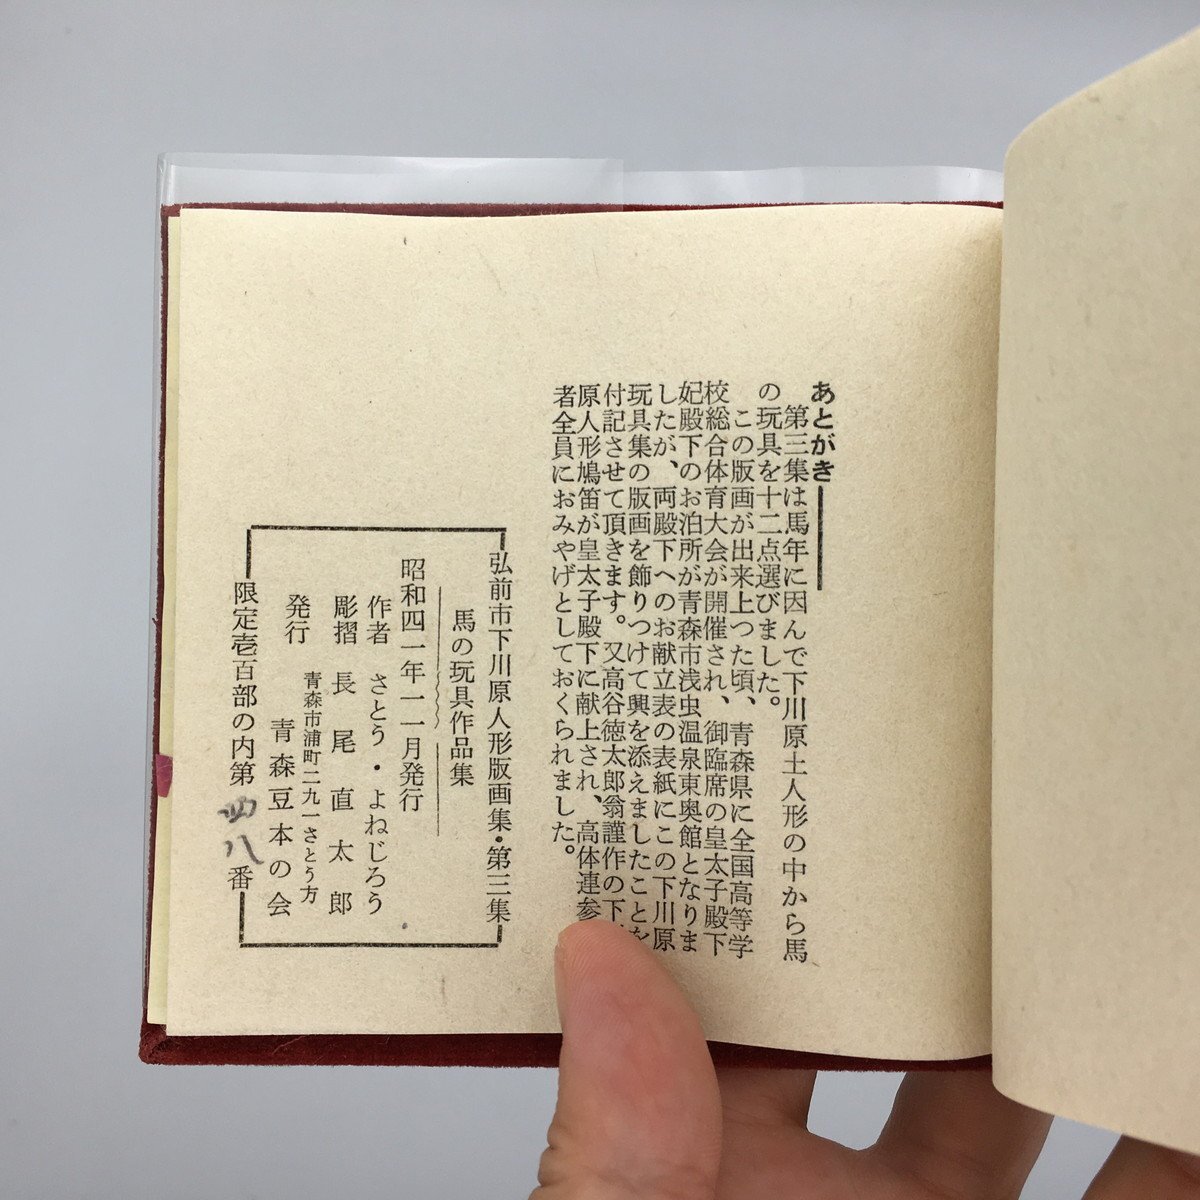 あとがき
第三集は馬年に因んで下川原土人形の中から馬
の玩具を十二点選びました。
この版画が出来上つた頃、青森県に全国高等学
校総合体育大会が開催され、御臨席の皇太子殿下
妃殿下のお泊所が青森市浅虫温泉東奥館となりま
したが、両殿下へのお献立表の表紙にこの下川原
玩具集の版画を飾りつけて興を添えましたことを
付記させて頂きます。又高谷徳太郎翁謹作の下
原人形鳩笛が皇太子殿下に献上され、高体連参
者全員におみやげとしておくられました。
弘前市下川原人形版画集・第三集
馬の玩具作品集
昭和四一年一一月発行
作者 さとう・よねじろう
彫摺 長尾直太郎
青森市浦町二九一さとう方
発行 青森豆本の会
限定壱百部の内第四八番